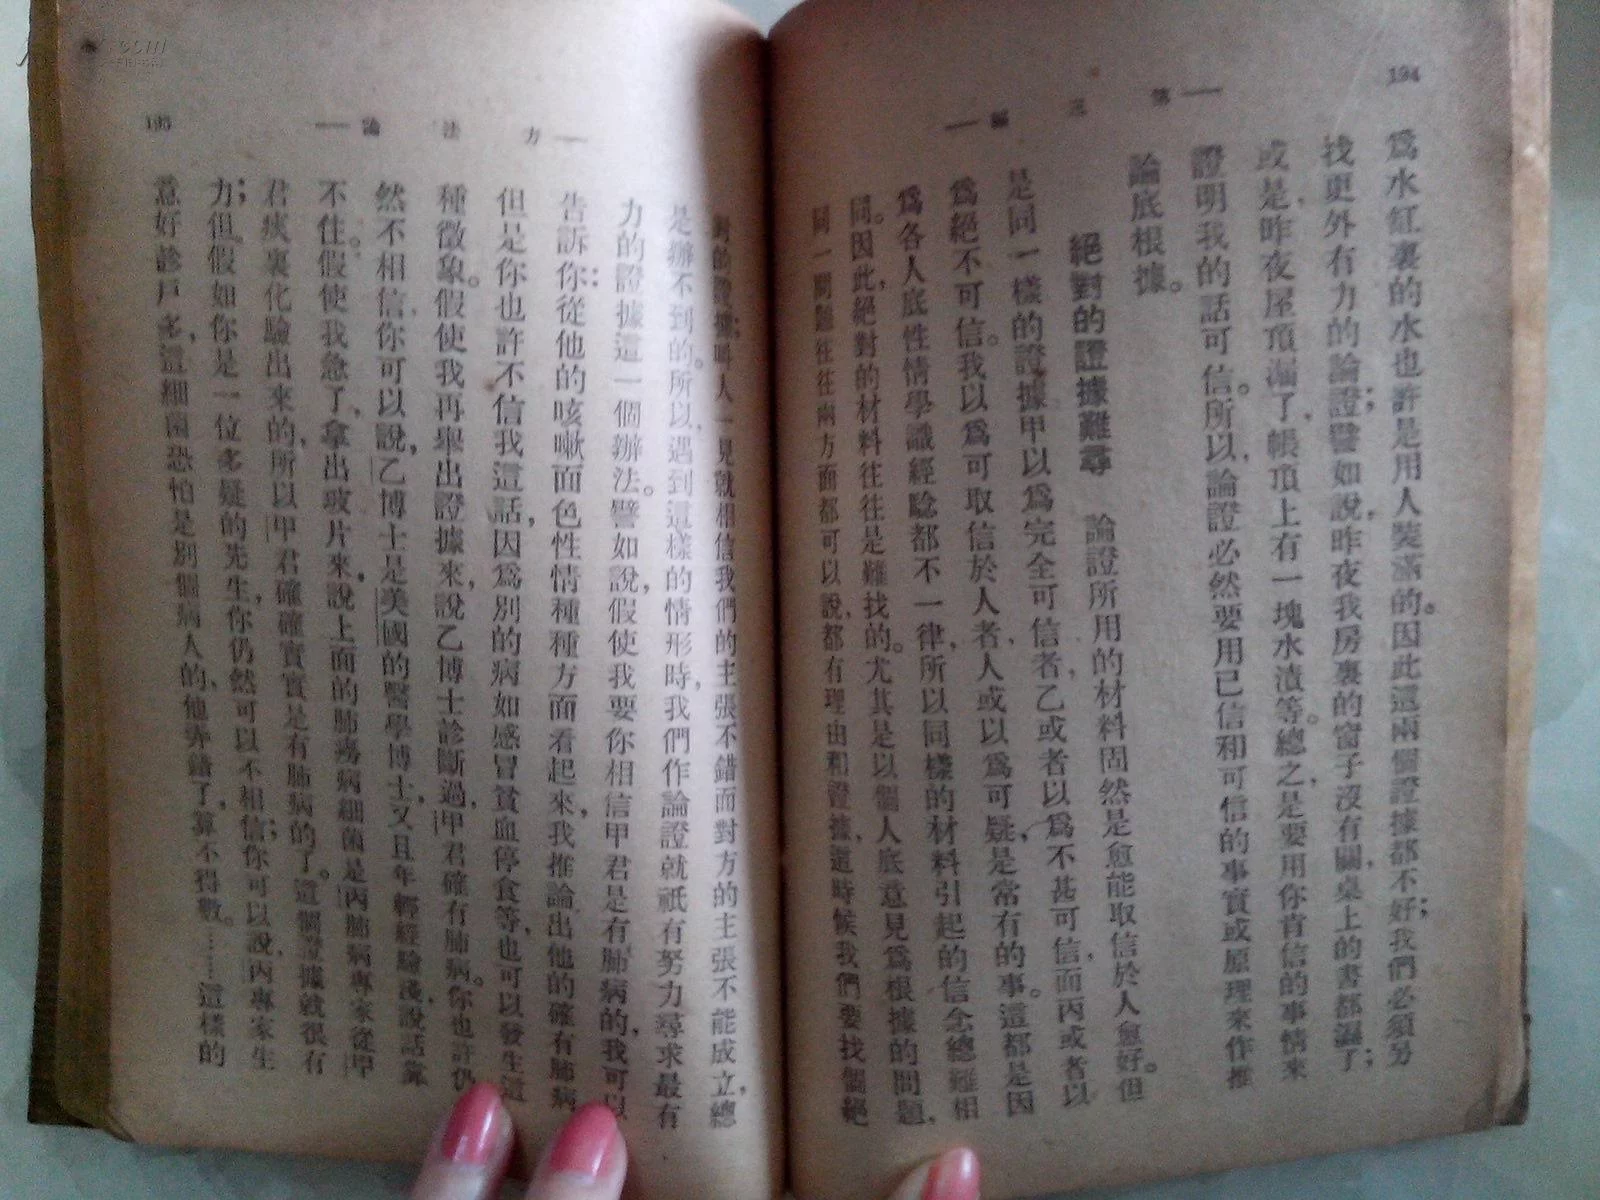 194
第三編
為水缸裏的水也許是用人裝滿的。因此這兩個證據都不好；我們必須另
找更外有力的論證；譬如說，昨夜我房裏的窗子沒有關，桌上的書都濕了；
或是，昨夜屋頂漏了，帳頂上有一塊水漬等。總之，是要用你肯信的事情來
證明我的話可信。所以，論證必然要用已信和可信的事實或原理來作推
論底根據。
絕對的證據難尋　論證所用的材料固然是愈能取信於人愈好。但
是同一樣的證據甲以為完全可信者，乙或者以為不甚可信，而丙或者以
為絕不可信。我以為可取信於人者，人或以為可疑，是常有的事。這都是因
為各人底性情學識經驗都不一律，所以同樣的材料引起的信念總難相
同。因此，絕對的材料往往是難找的。尤其是以個人底意見為根據的問題，
同一問題往往兩方面都可以說，都有理由和證據，這時候我們要找個絕
195
方法論
對的證據；叫人一見就相信我們的主張不錯而對方的主張不能成立，總
是辦不到的。所以，遇到這樣的情形時，我們作論證就祇有努力尋求最有
力的證據這一個辦法。譬如說，假使我要你相信甲君是有肺病的，我可以
告訴你：從他的咳嗽面色性情種種方面看起來，我推論出他的確有肺病
但是你也許不信我這話，因為別的病如感冒貧血停食等，也可以發生這
種徵象。假使我再舉出證據來，說乙博士診斷過，甲君確有肺病。你也許仍
然不相信，你可以說，乙博士是美國的醫學博士，又且年輕經驗淺，說話靠
不住。假使我急了，拿出玻片來，說上面的肺癆病細菌是丙肺病專家從甲
君痰裏化驗出來的，所以甲君確確實實是有肺病的了。這個證據就很有
力；但。假如你是一位多疑的先生，你仍然可以不相信；你可以說，丙專家生
意好診戶多，這細菌恐怕是別個病人的，他弄錯了，算不得數。……這樣的